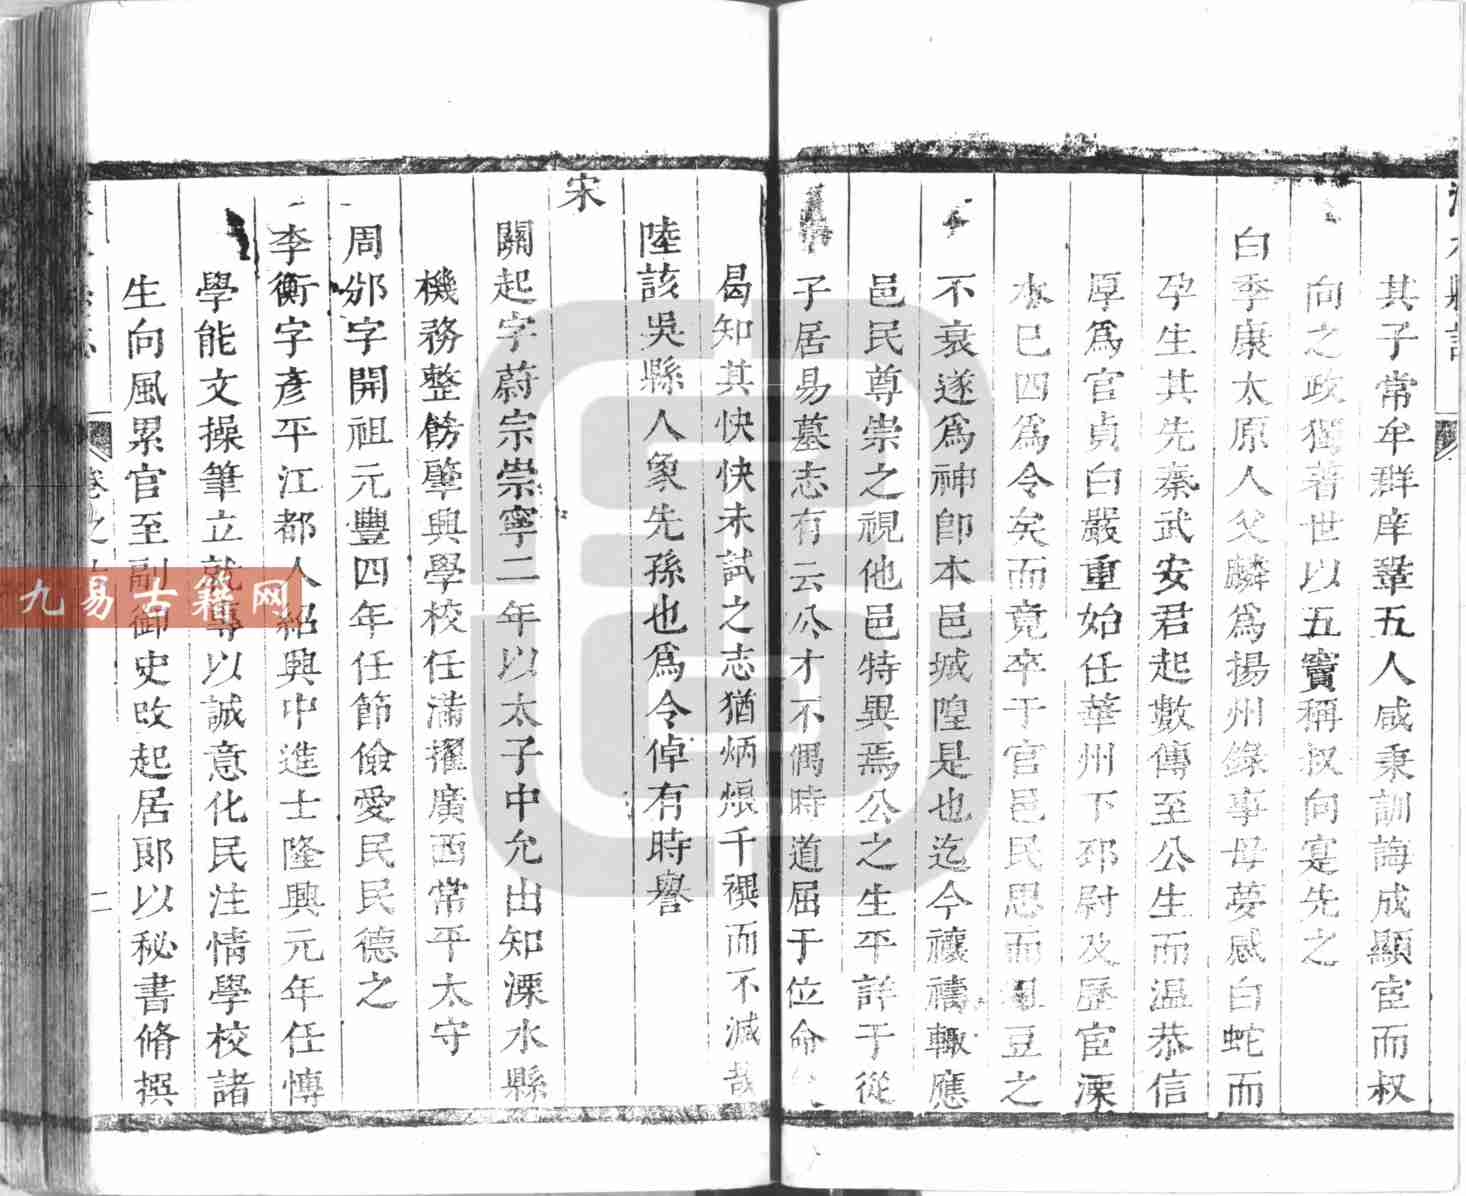 其子常牟群庠鞏五人咸秉訓誨成顯宦而叔
向之政獨著世以五竇稱叔向寔先之
白季康太原人父麟爲揚州錄事母夢感白蛇而
孕生其先秦武安君起數傳至公生而温恭信
厚爲官貞白嚴重始任華州下邳尉及歷宦溧
水巳四爲令矣而竟卒于官邑民思而俎豆之
不衰遂爲神卽本邑城隍是也迄今禳禱輙應
邑民尊崇之視他邑特異焉公之生平詳于從
子居易墓志有云公才不偶時道屈于位命
曷知其快快未試之志猶炳烺千禩而不滅哉
陸該吳縣人象先孫也爲令倬有時譽
宋
關起字蔚宗崇寧二年以太子中允出知溧水縣
機務整飭肇興學校任滿擢廣西常平太守
周邠字開祖元豐四年任節儉愛民民德之
李衡字彥平江都人紹興中進士隆興元年任愽
學能文操筆立就專以誠意化民注情學校諸
生向風累官至副御史改起居郞以秘書脩撰
卷之
二
九易古籍网